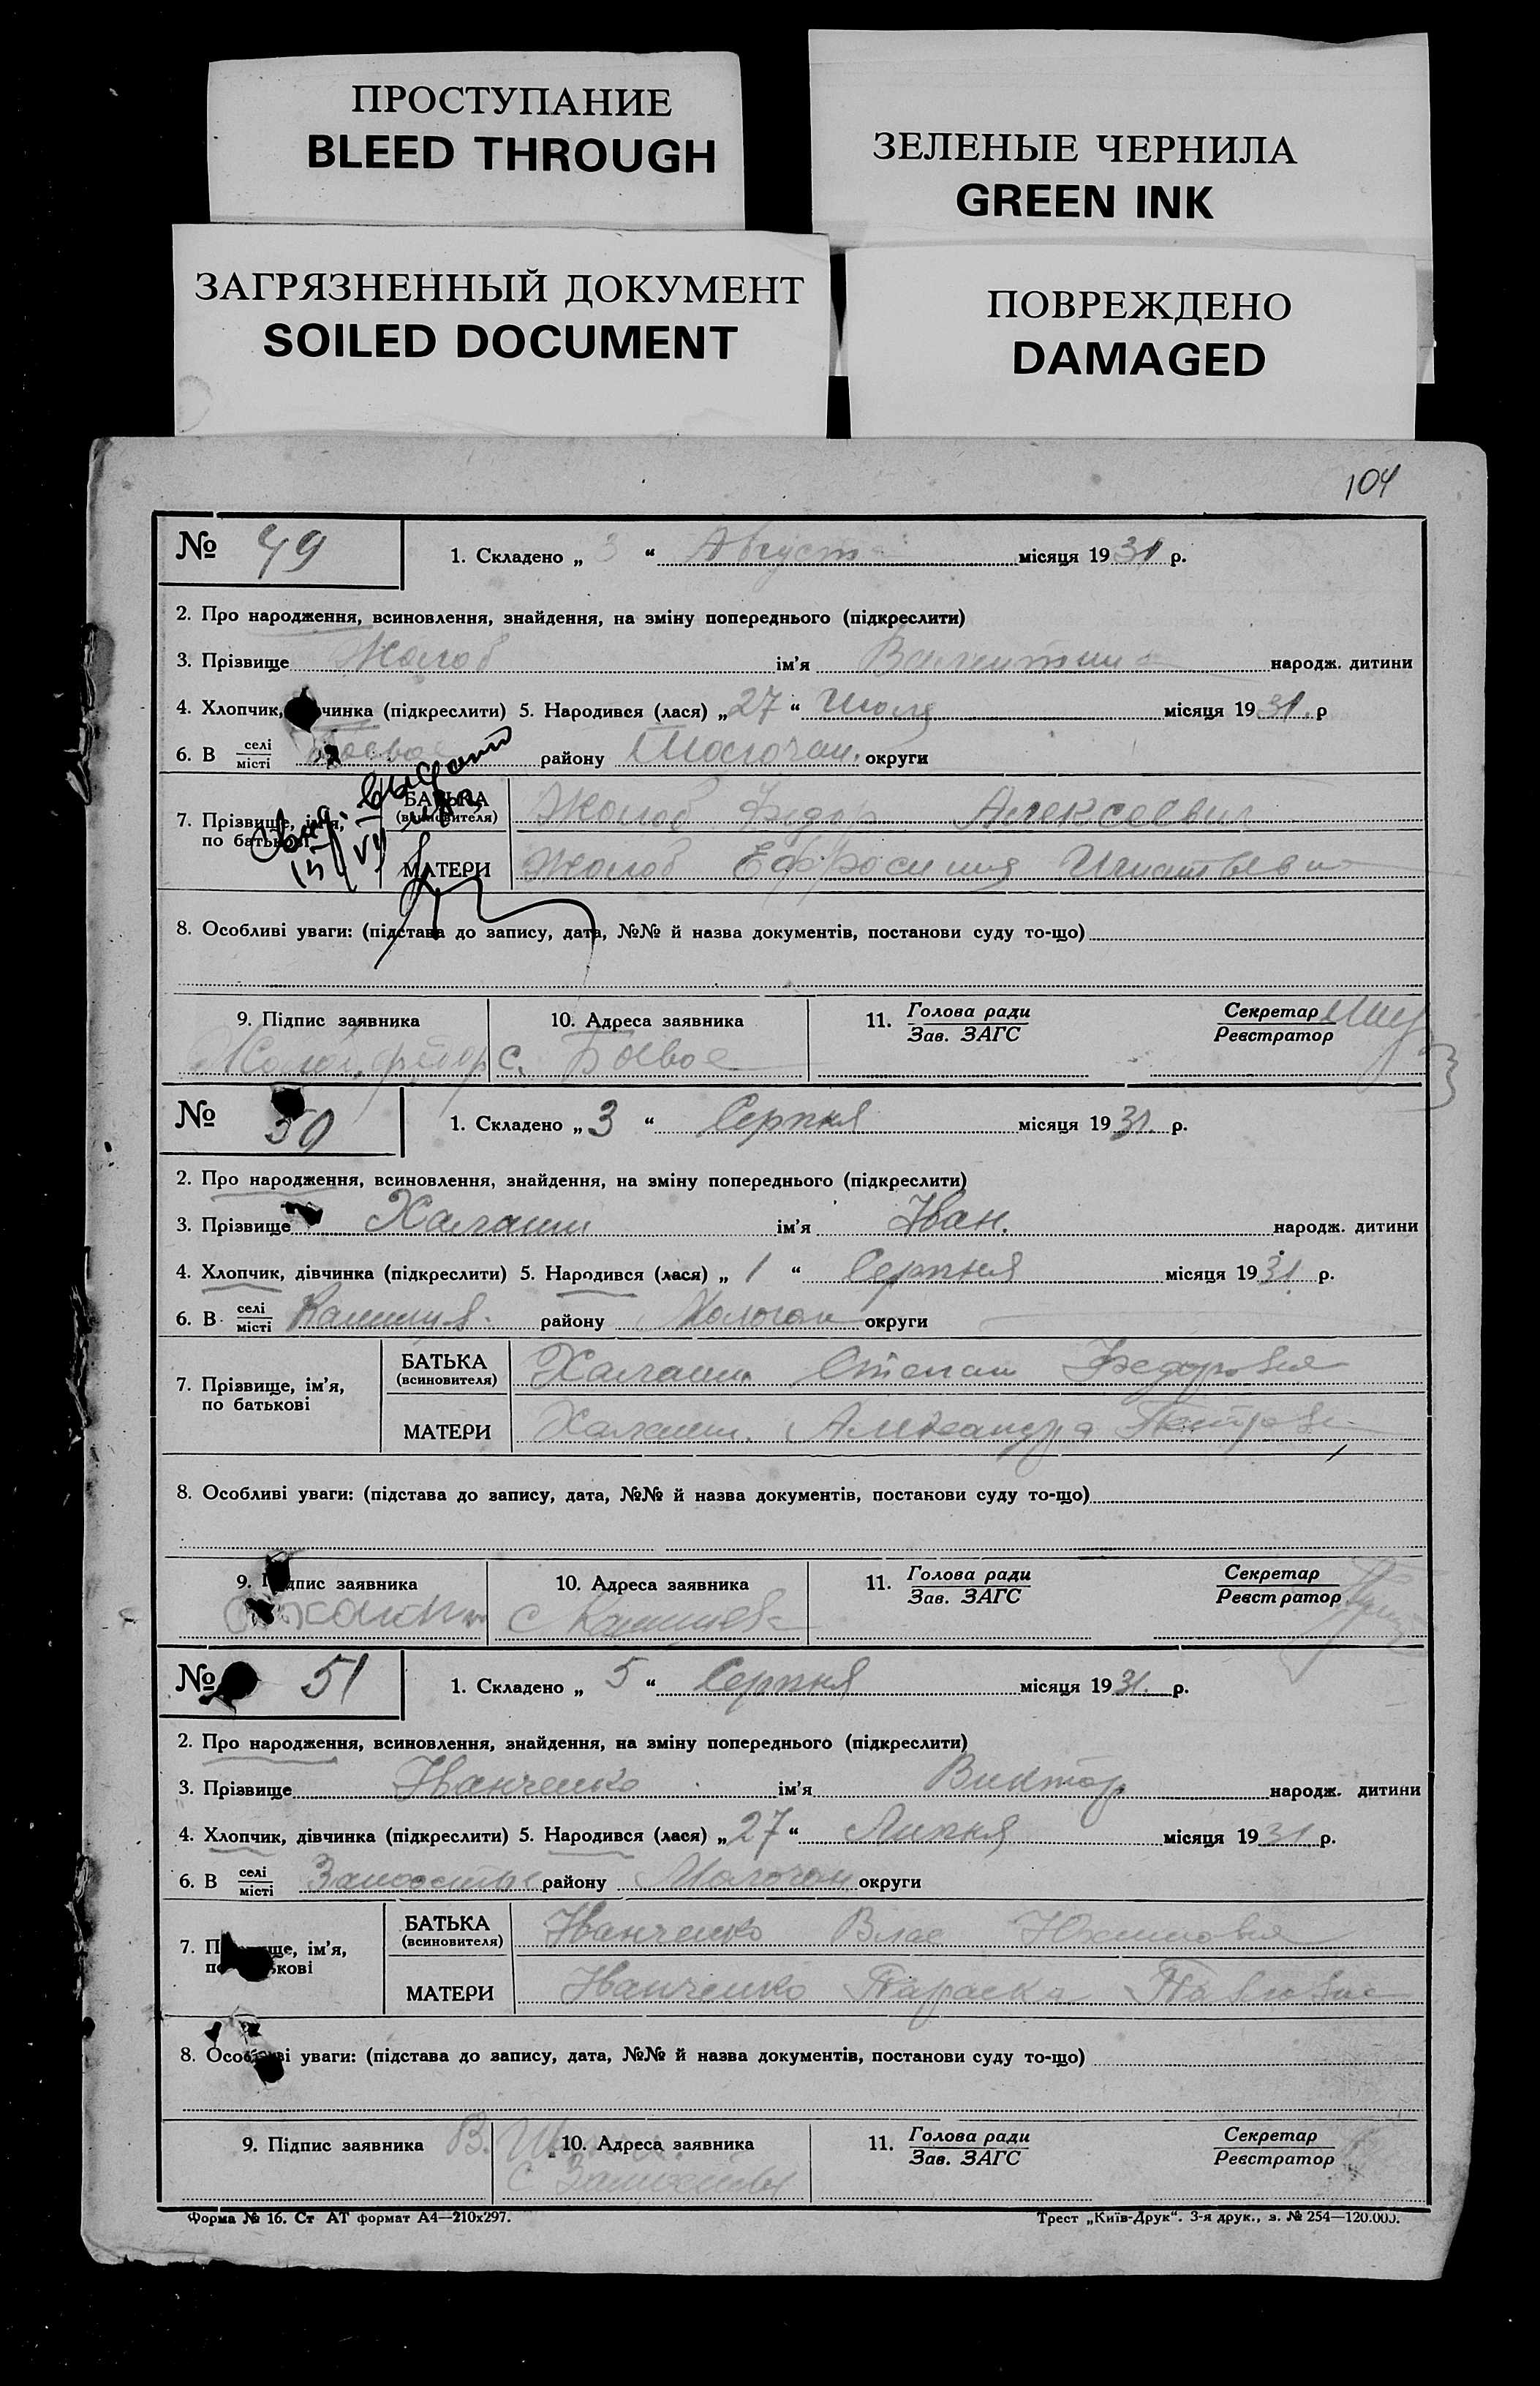 ПРОСТУПАНИЕ
BLEED THROUGH
ЗЕЛЕНЫЕ ЧЕРНИЛА
GREEN INK
ЗАГРЯЗНЕННЫЙ ДОКУМЕНТ
SOILED DOCUMENT
ПОВРЕЖДЕНО
DAMAGED
104
№ 49 1. Складено „ 3 “ Август місяця 1931 р.
2. Про народження, всиновлення, знайдення, на зміну попереднього (підкреслити)
3. Прізвище Жолоб ім'я Валентина народж. дитини
4. Хлопчик, чинка (підкреслити) 5. Народився (лася) „ 27 “ Июля місяця 1931. р
6. В селі місті Боевое району Молочан. округи
Свид. выдано
15/VII
7. Прізвище, ім'я, по батькові
БАТЬКА (всиновителя) Жолоб Федор Алексеевич
МАТЕРИ Жолоб Ефросиния Игнатьевн
8. Особливі уваги: (підстава до запису, дата, №№ й назва документів, постанови суду то-що)
9. Підпис заявника 10. Адреса заявника 11. Голова ради Зав. ЗАГС Секретар Реєстратор
Жолоб с. Боевое
№ 50 1. Складено „ 3 “ Серпня місяця 1931. р.
2. Про народження, всиновлення, знайдення, на зміну попереднього (підкреслити)
3. Прізвище ім'я Іван. народж. дитини
4. Хлопчик, дівчинка (підкреслити) 5. Народився (лася) „ 1 “ Серпня місяця 1931. р.
6. В селі місті району Молочан округи
7. Прізвище, ім'я, по батькові
БАТЬКА (всиновителя) Степан Федоровия
МАТЕРИ Александра Петров
8. Особливі уваги: (підстава до запису, дата, №№ й назва документів, постанови суду то-що)
9. Підпис заявника 10. Адреса заявника 11. Голова ради Зав. ЗАГС Секретар Реєстратор
с
№ 51 1. Складено „ 5 “ Серпня місяця 1931. р.
2. Про народження, всиновлення, знайдення, на зміну попереднього (підкреслити)
3. Прізвище Іванченко ім'я Виктор народж. дитини
4. Хлопчик, дівчинка (підкреслити) 5. Народився (лася) „ 27 “ Липня місяця 1931 р.
6. В селі місті району Молочан округи
7. П ще, ім'я, по кові
БАТЬКА (всиновителя) Іванченко Влас
МАТЕРИ Іванченко Параска Павловна
8. Особливі уваги: (підстава до запису, дата, №№ й назва документів, постанови суду то-що)
9. Підпис заявника 10. Адреса заявника 11. Голова ради Зав. ЗАГС Секретар Реєстратор
В. с
Форма № 16. Ст АТ формат А4—210х297.
Трест „Київ-Друк“. 3-я друк., з. № 254—120.000.